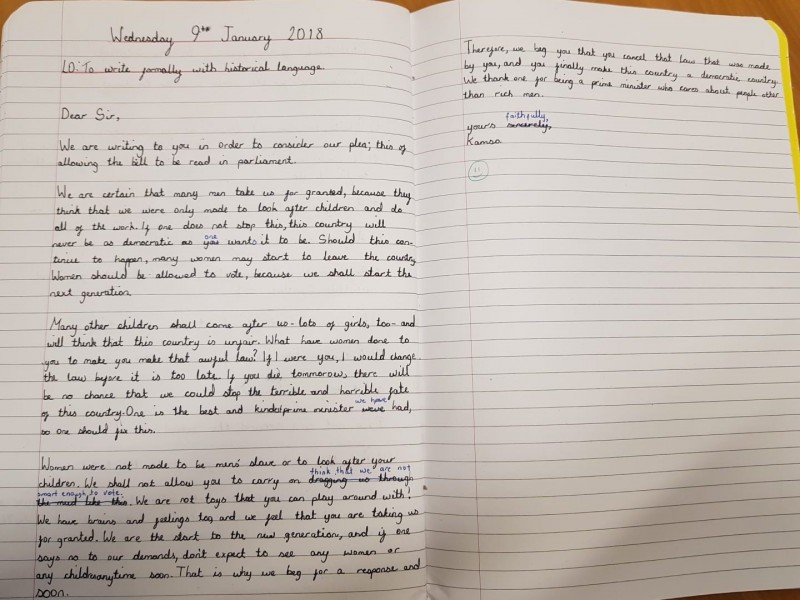 Wednesday 9th January 2018
LO: To write formally with historical language
Dear Sir,
We are writing to you in order to consider our plea; this of
allowing the bill to be read in parliament.
We are certain that many men take us for granted, because they
think that we were only made to look after children and do
all of the work. If one does not stop this, this country will
never be as democratic as you one wants it to be. Should this con-
tinue to happen, many women may start to leave the country.
Women should be allowed to vote, because we shall start the
next generation.
Many other children shall come after us - lots of girls, too - and
will think that this country is unfair. What have women done to
you to make you make that awful law? If I were you, I would change
the law before it is too late. If you die tommorow, there will
be no chance that we could stop the terrible and horrible fate
of this country. One is the best and kindest prime minister weve we have had,
so one should fix this.
Women were not made to be mens' slave or to look after your
children. We shall not allow you to carry on dragging us through
think that we are not
the mud like this. We are not toys that you can play around with!
smart enough to vote.
We have brains and feelings too, and we feel that you are taking us
for granted. We are the start to the new generation, and if one
says no to our demands, don't expect to see any women or
any children anytime soon. That is why we beg for a response and
soon.
Therefore, we beg you that you cancel that law that was made
by you, and you finally make this country a democratic country.
We thank one for being a prime minister who cares about people other
than rich men.
faithfully,
yours sincerely,
Kamsa